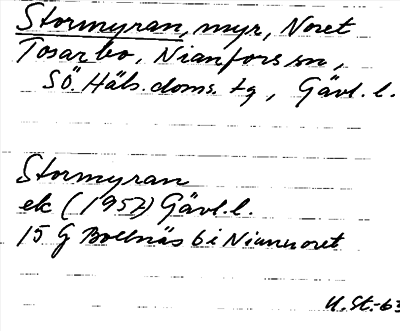 Stormyran, myr, Noret
Tosarbo, Nianfors sn,
SÖ. Häls. doms. tg, Gävl. l.
Stormyran
ek (1957) Gävl. l.
15 G Bollnäs 6 i Niannoret
U. St.-63